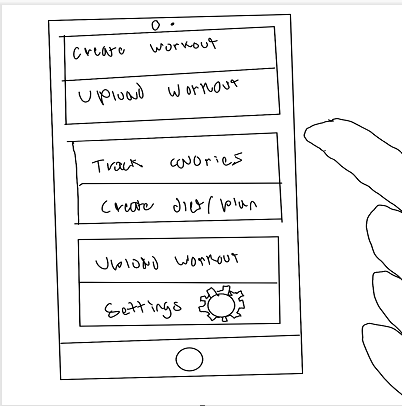 Create workout
Upload workout
Track calories
Create diet/plan
Upload workout
Settings